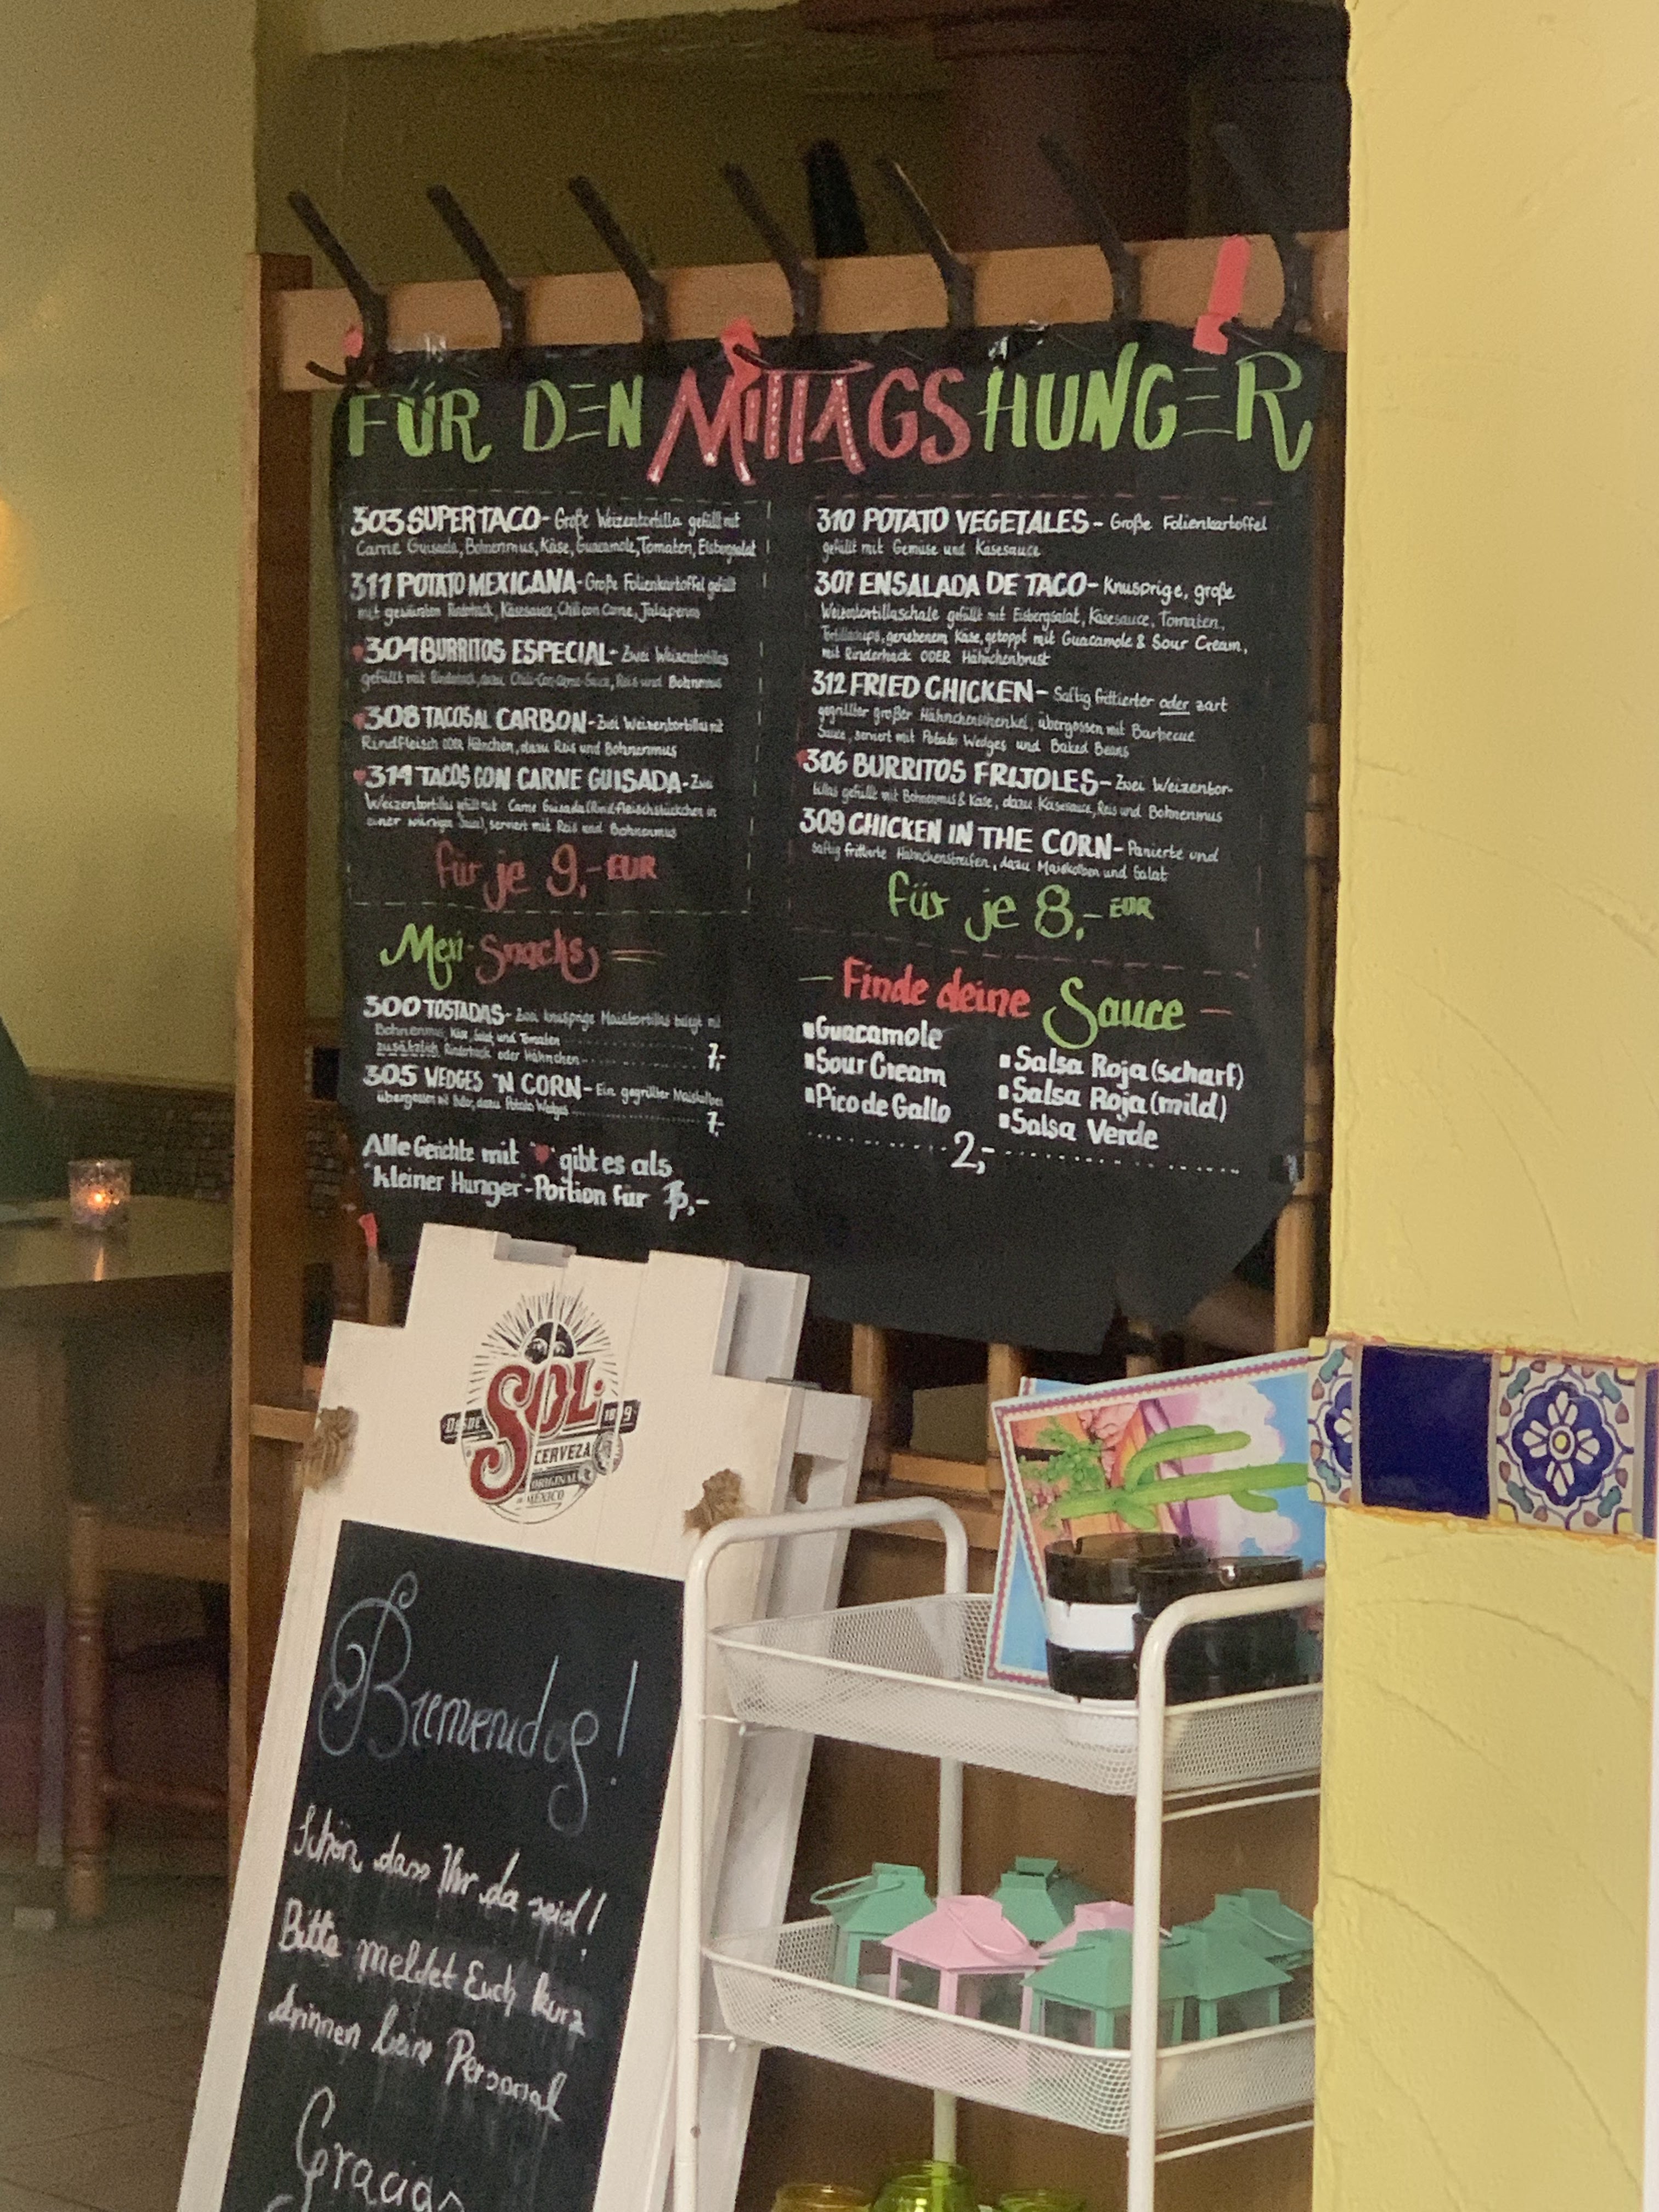 FÜR DEN MITTAGSHUNGER
303 SUPERTACO- Große Weizentortilla gefüllt mit
Carne Guisada, Bohnenmus, Käse, Guacamole, Tomaten, Eisbergsalat
311 POTATO MEXICANA- Große Folienkartoffel gefüllt
mit gewürztem Rinderhack, Käsesauce, Chili con Carne, Jalapenos
304 BURRITOS ESPECIAL- Zwei Weizentortillas
gefüllt mit Rinderhack, dazu Chili-Con-Carne-Sauce, Reis und Bohnenmus
308 TACOS AL CARBON- Zwei Weizentortillas mit
Rindfleisch ODER Hähnchen, dazu Reis und Bohnenmus
314 TACOS CON CARNE GUISADA- Zwei
Weizentortillas gefüllt mit Carne Guisada (Rindfleischstückchen in
einer würzigen Sauce), serviert mit Reis und Bohnenmus
für je 9,- EUR
Mexi-Snacks
300 TOSTADAS- Zwei knusprige Maistortillas belegt mit
Bohnenmus, Käse, Salat und Tomaten
zusätzlich Rinderhack oder Hähnchen 7,-
305 WEDGES 'N CORN- Ein gegrillter Maiskolben
übergossen mit Butter, dazu Potato Wedges 7,-
Alle Gerichte mit " " gibt es als
"kleiner Hunger"-Portion für ,-
310 POTATO VEGETALES- Große Folienkartoffel
gefüllt mit Gemüse und Käsesauce
307 ENSALADA DE TACO- Knusprige, große
Weizentortillaschale gefüllt mit Eisbergsalat, Käsesauce, Tomaten,
Tortillachips, geriebenem Käse, getoppt mit Guacamole & Sour Cream,
mit Rinderhack ODER Hähnchenbrust
312 FRIED CHICKEN- Saftig frittierter oder zart
gegrillter großer Hähnchenschenkel, übergossen mit Barbecue
Sauce, serviert mit Potato Wedges und Baked Beans
306 BURRITOS FRIJOLES- Zwei Weizentor-
tillas gefüllt mit Bohnenmus & Käse, dazu Käsesauce, Reis und Bohnenmus
309 CHICKEN IN THE CORN- Panierte und
saftig frittierte Hähnchenstreifen, dazu Maiskolben und Salat
für je 8,- EUR
- Finde deine Sauce -
Guacamole
Sour Cream
Pico de Gallo
Salsa Roja (scharf)
Salsa Roja (mild)
Salsa Verde
2,-
SOL
DESDE 1899
CERVEZA
ORIGINAL
MÉXICO
Bienvenidos!
Schön, dass Ihr da seid!
Bitte meldet Euch kurz
drinnen beim Personal
Gracias